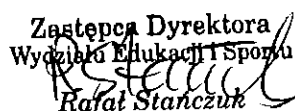 Zastępca Dyrektora
Wydziału Edukacji i Sportu
Rafał Stańczuk